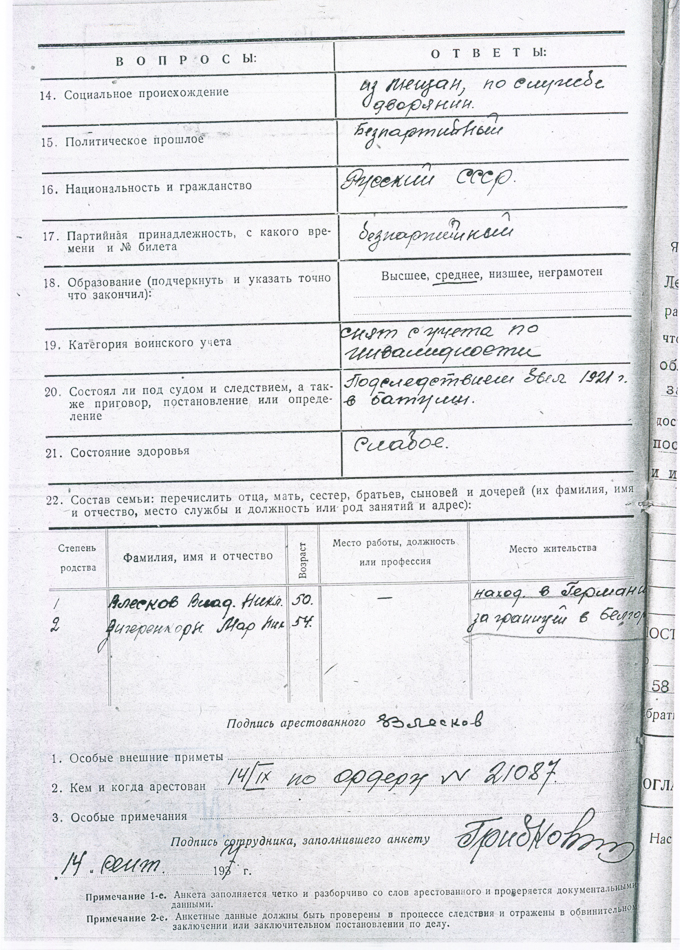 ВОПРОСЫ: ОТВЕТЫ:
14. Социальное происхождение из мещан, по службе
дворянин.
15. Политическое прошлое безпартийный
16. Национальность и гражданство Русский СССР.
17. Партийная принадлежность, с какого вре-
мени и № билета безпартийный
18. Образование (подчеркнуть и указать точно Высшее, среднее, низшее, неграмотен
что закончил):
19. Категория воинского учета снят с учета по
инвалидности
20. Состоял ли под судом и следствием, а так- Подследствием был 1921 г.
же приговор, постановление или опреде- в батуми.
ление
21. Состояние здоровья слабое.
22. Состав семьи: перечислить отца, мать, сестер, братьев, сыновей и дочерей (их фамилия, имя
и отчество, место службы и должность или род занятий и адрес):
Степень
родства
Фамилия, имя и отчество
Возраст
Место работы, должность
или профессия
Место жительства
1 Влесков Влад. Никл. 50. — наход. в Германи
2 Мар Ник 54. за границей в Белгор
Подпись арестованного Влесков
1. Особые внешние приметы
2. Кем и когда арестован 14/IX по ордеру N 21087.
3. Особые примечания
Подпись сотрудника, заполнившего анкету
14. сент. 1937 г.
Примечание 1-е. Анкета заполняется четко и разборчиво со слов арестованного и проверяется документальными
данными.
Примечание 2-е. Анкетные данные должны быть проверены в процессе следствия и отражены в обвинительно
заключении или заключительном постановлении по делу.
Я
Ле
ра
что
об.
за
дос
пос
и и
ОСТ
58
брат
ОГЛА
Нас